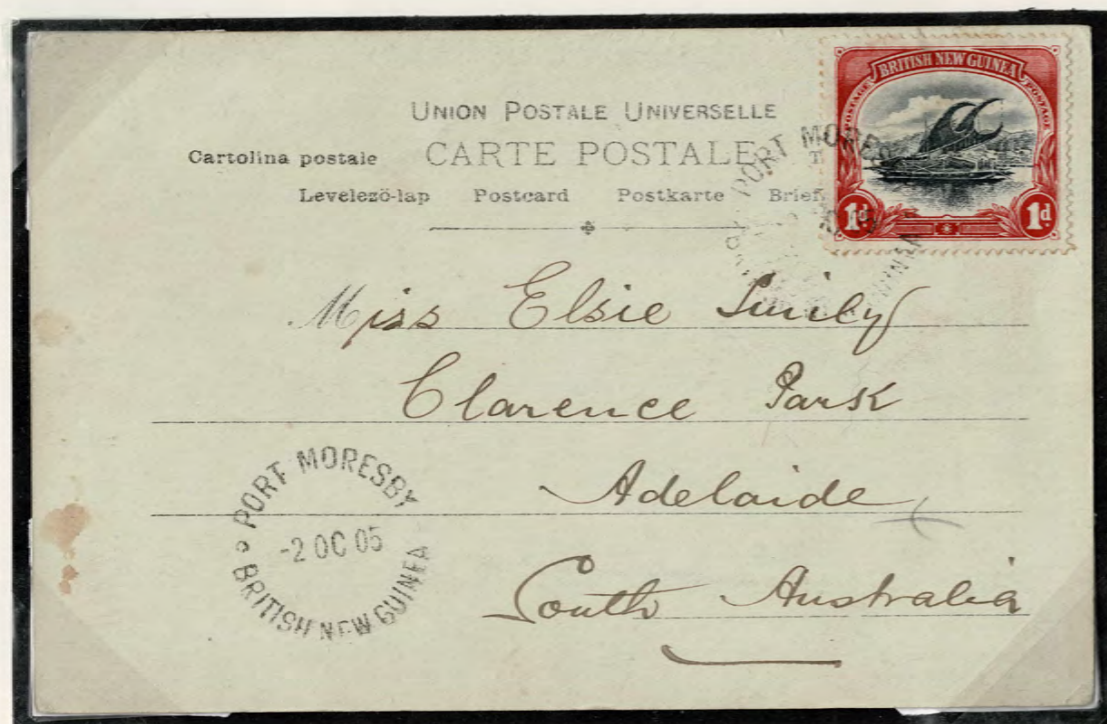 UNION POSTALE UNIVERSELLE
Cartolina postale CARTE POSTALE
Levelező-lap Postcard Postkarte
BRITISH NEW GUINEA
POSTAGE POSTAGE
1d 1d
PORT MORES
Miss Elsie
Clarence Park
Adelaide
South Australia
PORT MORESBY
-2 OC 05
BRITISH NEW GUINEA